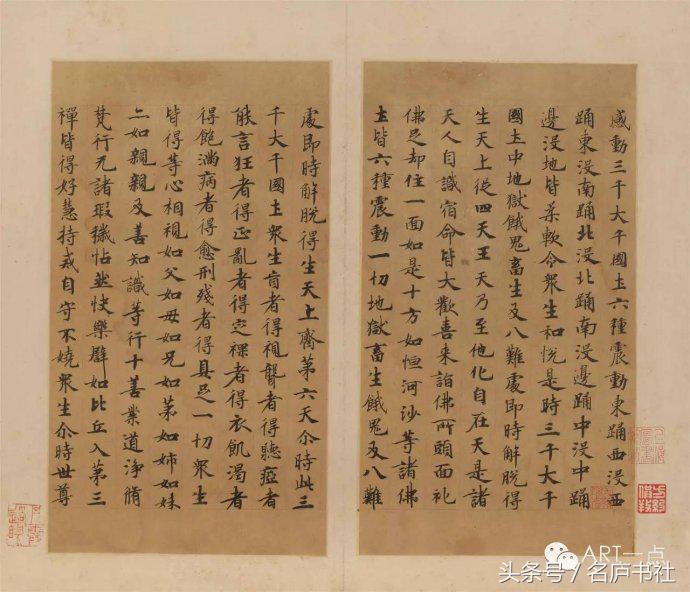 感動三千大千國土六種震動東踊西浸西
踊東浸南踊北浸北踊南浸邊踊中浸中踊
邊浸地皆柔軟令衆生和悅是時三千大千
國土中地獄餓鬼畜生及八難處即時解脫得
生天上從四天王天乃至他化自在天是諸
天人自識宿命皆大歡喜来詣佛所頭面礼
佛足却住一面如是十方如恒河沙等諸佛
土皆六種震動一切地獄畜生餓鬼及八難
處即時解脫得生天上齊第六天尒時此三
千大千國土衆生盲者得視聾者得聽瘂者
能言狂者得正亂者得定裸者得衣飢渴者
得飽滿病者得愈刑殘者得具足一切衆生
皆得等心相視如父如母如兄如弟如姉如妹
亦如親親及善知識等行十善業道淨脩
梵行无諸瑕穢恬然快樂譬如比丘入第三
禪皆得好慧持戒自守不嬈衆生尒時世尊
ART一点
头条号 / 名庐书社